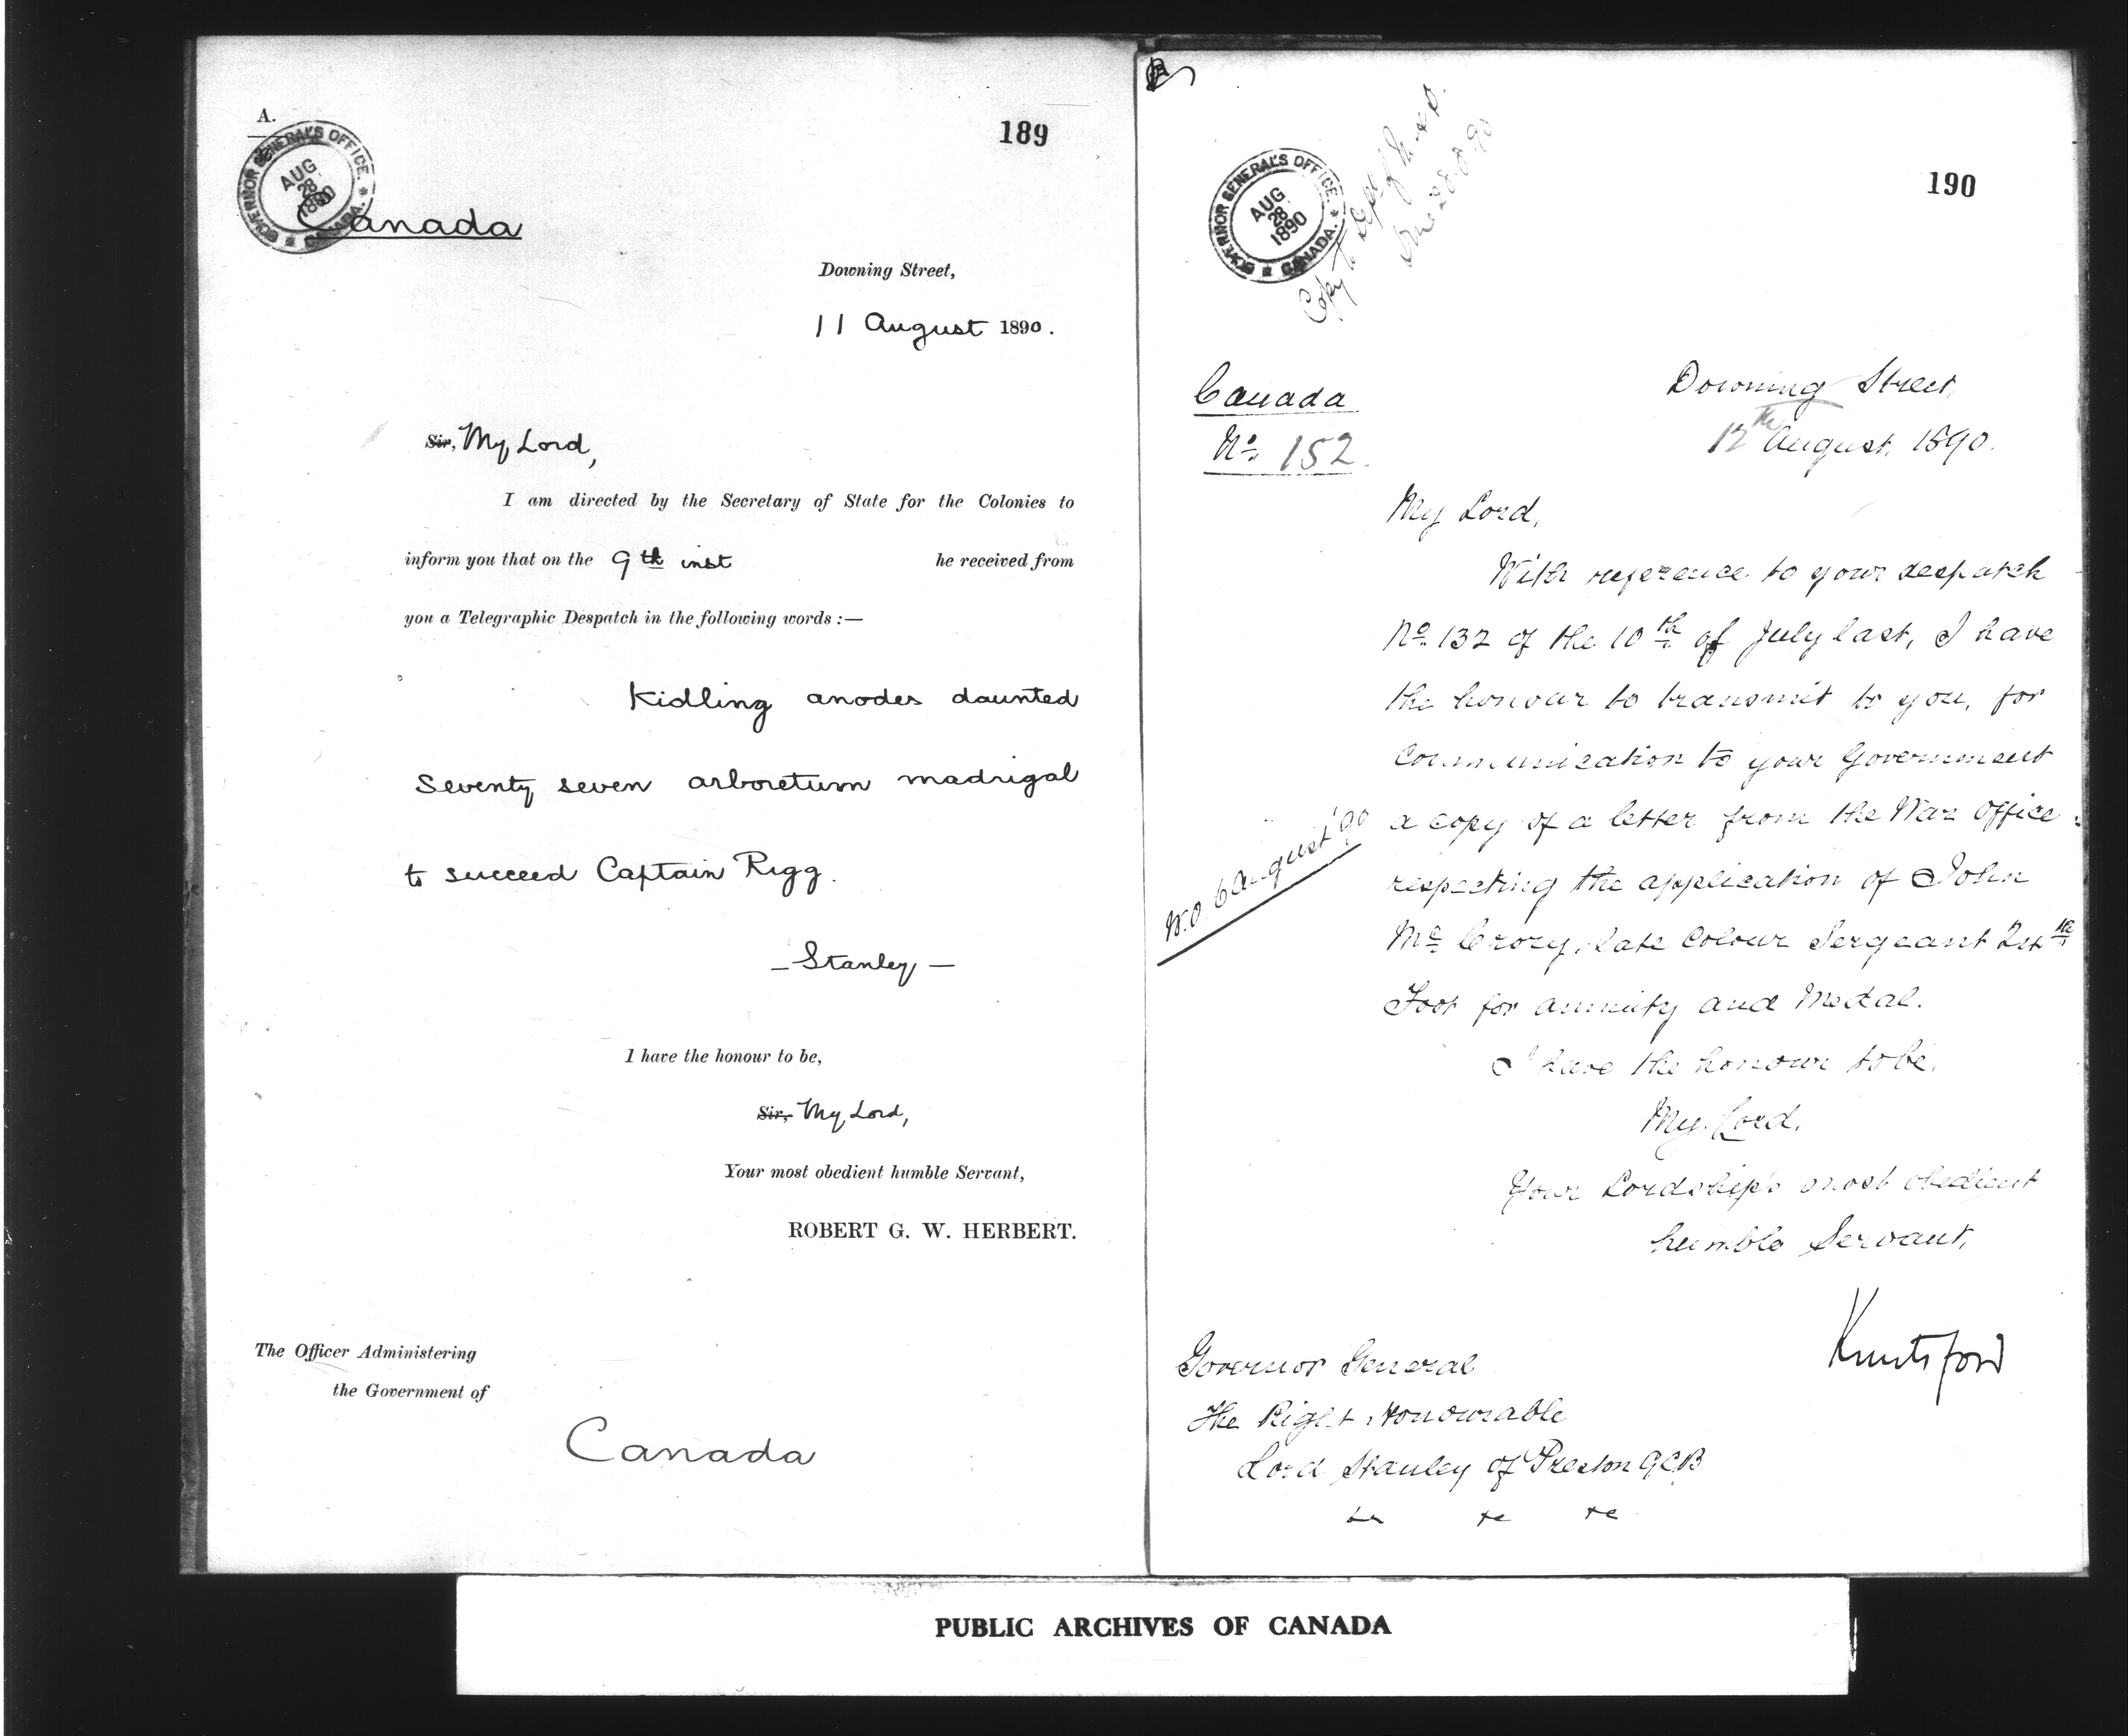 A.
189
GOVERNOR GENERAL'S OFFICE. * CANADA. *
AUG
28.
1890
Canada
Downing Street,
11 August 1890.
Sir, My Lord,
I am directed by the Secretary of State for the Colonies to
inform you that on the 9th inst he received from
you a Telegraphic Despatch in the following words :—
Kidling anodes daunted
Seventy seven arboretum madrigal
to succeed Captain Rigg.
– Stanley –
I have the honour to be,
Sir, My Lord,
Your most obedient humble Servant,
ROBERT G. W. HERBERT.
The Officer Administering
the Government of
Canada
190
GOVERNOR GENERAL'S OFFICE. * CANADA. *
AUG
28.
1890
Copy to Dept of
28.8.90
Canada
No. 152.
Downing Street,
12th August, 1890.
My Lord,
With reference to your despatch
No. 132 of the 10th of July last, I have
the honour to transmit to you, for
communication to your Government
a copy of a letter from the War Office
W.O. 6 August '90
respecting the application of John
Mc Crory, late Colour Sergeant 24th
Foot for annuity and Medal.
I have the honour to be,
My Lord,
Your Lordship's most obedient
humble Servant,
Knutsford
Governor General
The Right Honourable
Lord Stanley of Preston GCB
&c &c &c
PUBLIC ARCHIVES OF CANADA